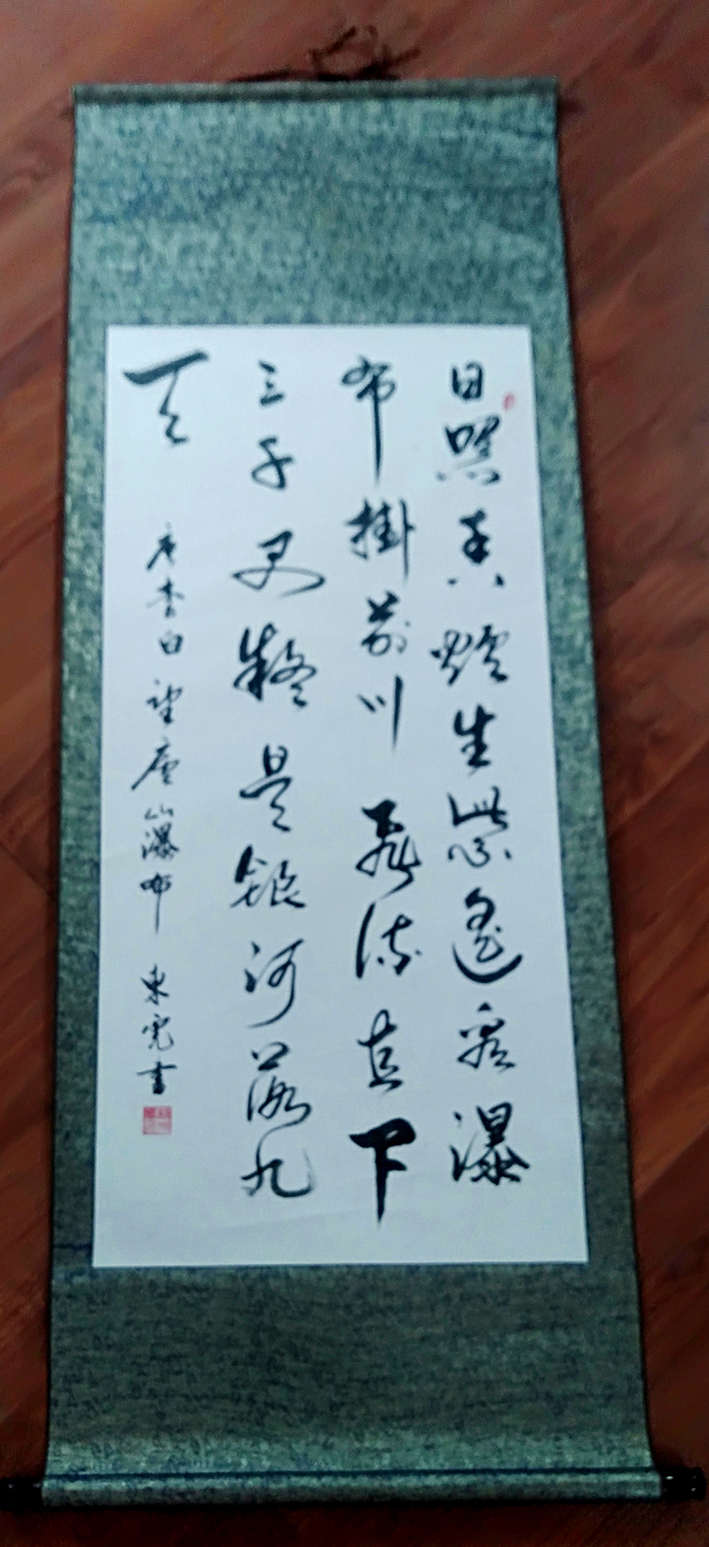 日照香爐生紫遙看瀑
布掛前川飛流直下
三千尺疑是銀河落九
天
唐李白望廬山瀑布 東書